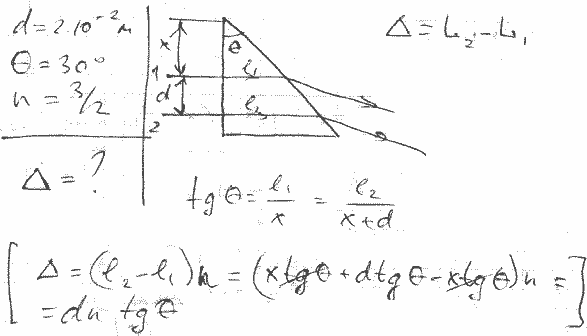 d = 2·10⁻² м
θ = 30°
n = 3/2
Δ = ?
x
θ
1
l₁
d
l₂
2
Δ = L₂ - L₁
tg θ = l₁/x = l₂/(x+d)
[Δ = (l₂ - l₁)n = (x tg θ + d tg θ - x tg θ)n =
= dn tg θ]